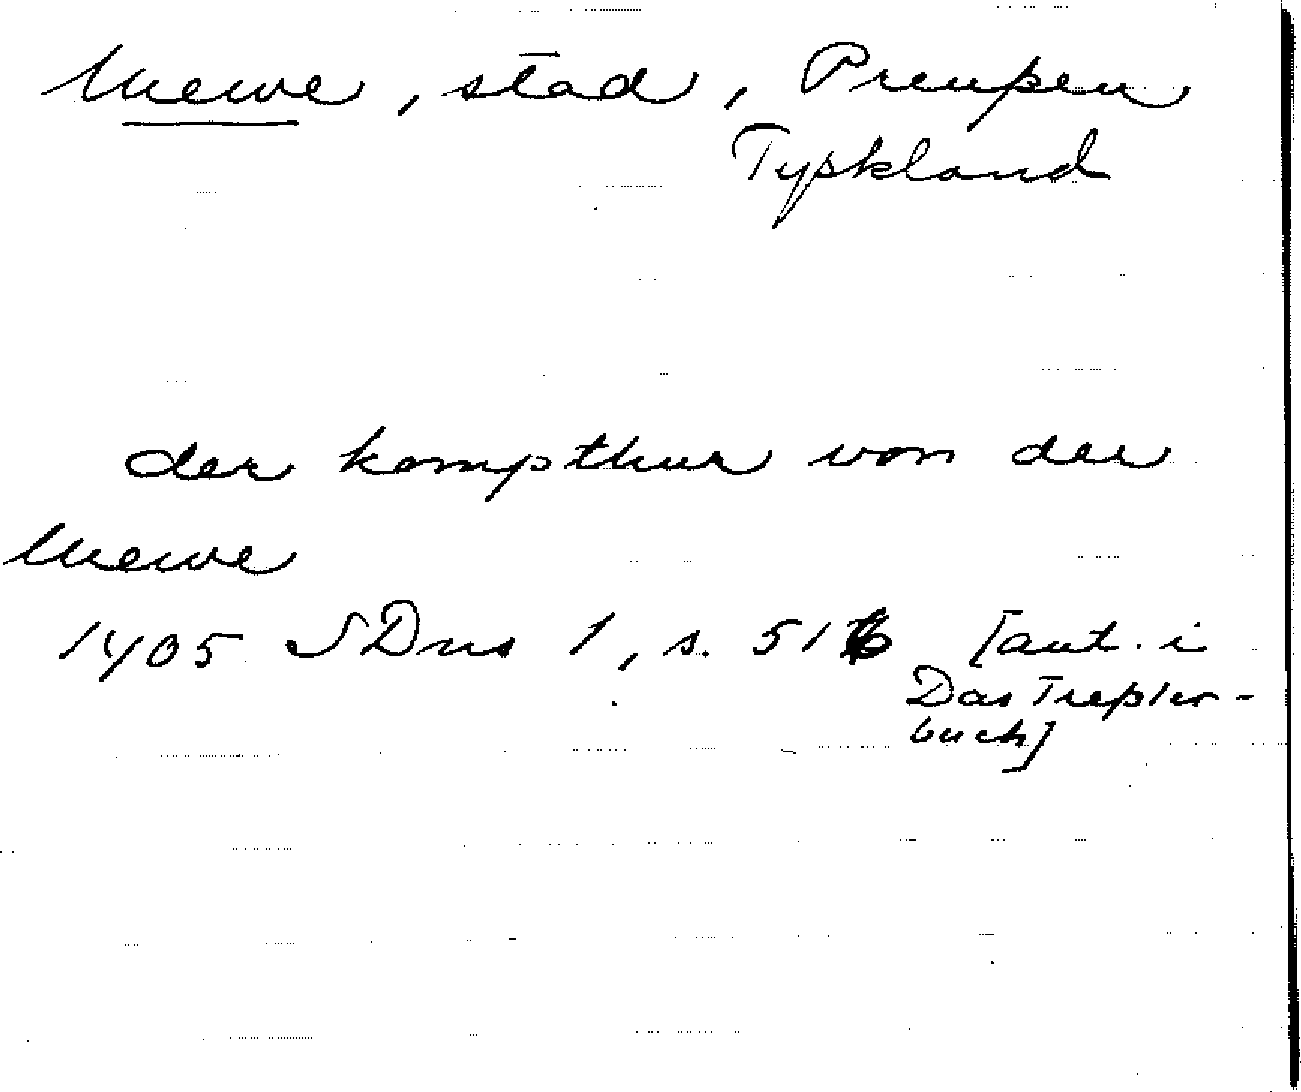 Mewe, stad, Preußen
Tyskland
der kompthur von der
Mewe
1405 SDns 1, s. 516 [ant. i
Das Treßler-
buch]